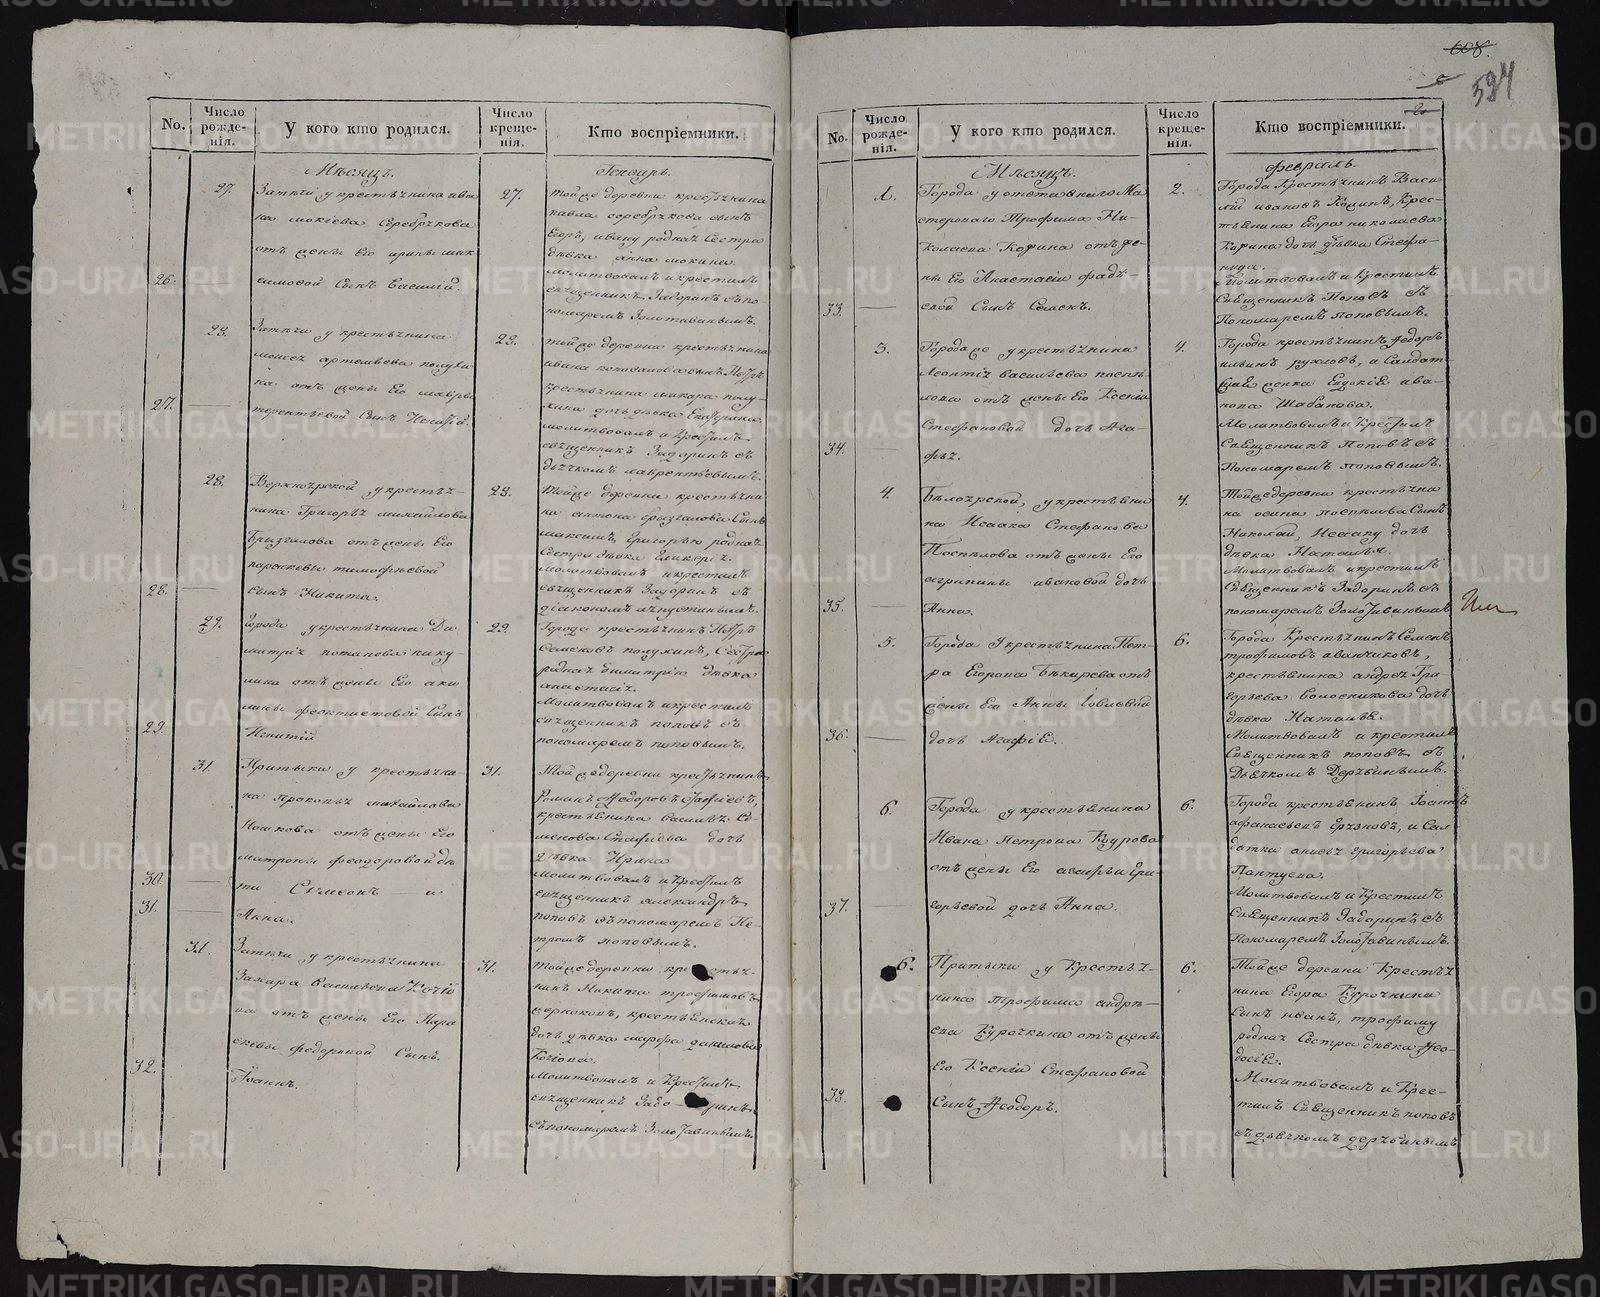 608.
594
No.
Число рожде-нія.
У кого кто родился.
Число креще-нія.
Кто воспріемники.
Мѣсяцъ.
Генварь.
27.
Затѣчи у крестьянина ива
на мокіева Серебрѣкова
отъ жены Его ирины мак
26.
симовой Сынъ Василій.
27.
тойже деревни крестьянина
павла серебрѣкова сынъ
Егоръ, ивану родная Сестра
дѣвка анна мокина.
молитвовалъ и крестилъ
священникъ Задоринъ съ по
номаремъ Золотавинымъ.
28.
Затѣчи у крестьянина
моисея артемьева полухи
на отъ жены Его мавры
27.
терентьевой Сынъ
28.
тойже деревни крестьянина
ивана сынъ Петръ
крестьянина макара полу-
хина дочь дѣвка Екатерина.
молитвовалъ и Крестилъ
священникъ Задоринъ съ
дьячкомъ лаврентьевымъ.
28.
у крестья-
нина Григорья михайлова
Брызгалова отъ жены Его
парасковьи тимофѣевой
28.
сынъ Никита.
28.
Тойже деревни крестьяни
на антона брызгалова Сынъ
максимъ, Григорью родная
Сестра дѣвка Гликерія.
молитвовалъ и крестилъ
священникъ Задоринъ съ
діакономъ
29.
Города у крестьянина Ди
митрія потапова пику
лина отъ жены Его аки
лины феоктистовой Сынъ
29.
Игнатій
29.
Города крестьянинъ Петръ
Семеновъ Сестра
родная димитрію дѣвка
анастасія.
Молитвовалъ и крестилъ
священникъ поповъ съ
пономаремъ поповымъ.
31.
Притыки у крестьяни-
на Прокопья михайлова
Кошкова отъ жены Его
матроны феодоровой дѣ
30.
ти Сумеонъ — и
31.
Анна.
31.
Той же деревни крестьянинъ
Романъ Ѳедоровъ
крестьянина Василья Се
менова дочь
дѣвка Ирина
молитвовалъ и Крестилъ
священникъ александръ
поповъ съ пономаремъ Пе-
тромъ поповымъ.
31.
Затѣчи у крестьянина
Захара Васильева
ва отъ жены Его Пара
скевы федоровой Сынъ
32.
Іоаннъ.
31.
тойже деревни крестья-
нинъ Никита трофимовъ
крестьянская
дочь дѣвка марфа данилова
Молитвовалъ и Крестилъ
священникъ Задоринъ
съ пономаремъ Золотавинымъ.
No.
Число рожде-нія.
У кого кто родился.
Число креще-нія.
Кто воспріемники.
Мѣсяцъ.
февраль.
1.
Города у отставнаго Ма
стероваго Трофима Ни-
колаева Кокина отъ же-
ны Его Анастасіи фадѣ-
33.
евой Сынъ Семенъ.
2.
Города Крестьянинъ Васи
лій ивановъ Кокинъ, Крес-
тьянина Егора николаева
Кокина дочь дѣвка Стефа-
нида.
Молитвовалъ и Крестилъ
Священникъ Поповъ съ
Пономаремъ поповымъ.
3.
Города же у крестьянина
Леонтія Васильева поспѣ
лова отъ жены Его Ксеніи
Стефановой дочь Ага-
34.
фья.
4.
Города крестьянинъ Ѳедоръ
ильинъ и Салдат
жонка Евдокія ива-
нова Шабанова.
Молитвовалъ и Крестилъ
Священникъ поповъ съ
Пономаремъ поповымъ.
4.
Бѣлоярской, у крестьяни
на Исаака Стефанова
Поспѣлова отъ жены Его
агрипины ивановой дочь
35.
Анна.
4.
Тойже деревни крестьяни
на осипа поспѣлова Сынъ
Николай, Исааку дочь
дѣвка Наталья.
Молитвовалъ и крестилъ
Священникъ Задоринъ съ
пономаремъ Золотавинымъ
5.
Города у крестьянина Пет-
ра Егорова Бѣкирева отъ
жены Его Анны Іовлевой
36.
дочь Агафія.
6.
Города Крестьянинъ Семенъ
трофимовъ аванчиковъ,
крестьянина андрея Гри-
горьева Волосникова дочь
дѣвка Наталья.
Молитвовалъ и крестилъ
Священникъ поповъ съ
Дьячкомъ Дерябинымъ.
6.
Города у крестьянина
Ивана Петрова Кудрова
отъ жены Его Гри-
37.
горьевой дочь Анна.
6.
Города крестьянинъ Іоаннъ
афанасьевъ и Сал
датка анисья григорьева
Пантуева.
Молитвовалъ и Крестилъ
Священникъ Задоринъ съ
Пономаремъ Золотавинымъ.
6.
Притыки у Крестья-
нина Трофима андрѣ-
ева Курочкина отъ жены
Его Ксеніи Стефановой
38.
Сынъ Ѳеодоръ.
6.
Тойже деревни Крестья
нина Егора Курочкина
Сынъ иванъ, трофиму
родная Сестра дѣвка Ѳео-
досія.
Молитвовалъ и Крес-
тилъ Священникъ поповъ
съ дьячкомъ дерябинымъ